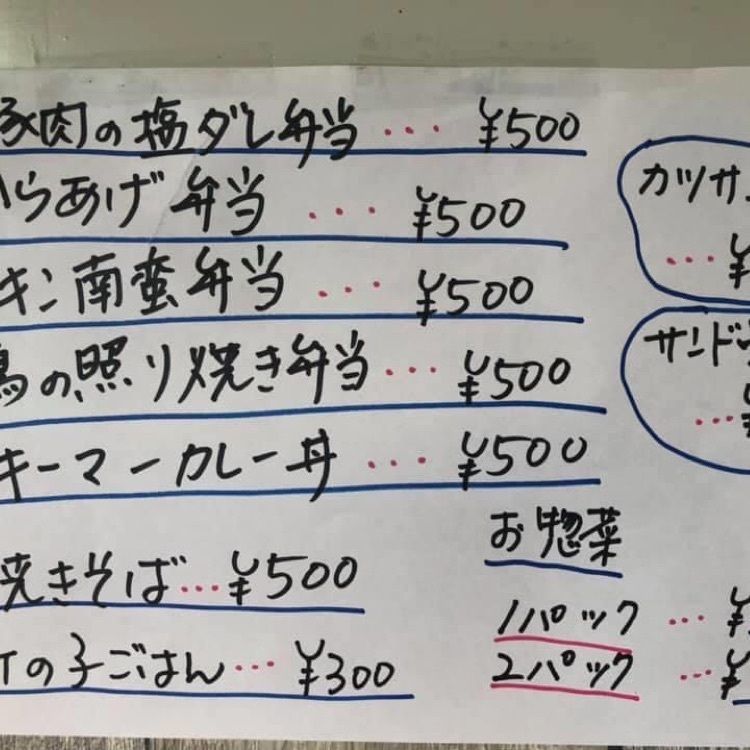 豚肉の塩ダレ弁当 ... ¥500
からあげ弁当 ... ¥500
キン南蛮弁当 ... ¥500
鳥の照り焼き弁当 ... ¥500
キーマーカレー丼 ... ¥500
焼きそば ... ¥500
の子ごはん ... ¥300
カツサ
... ¥
サンド
...
お惣菜
1パック ... ¥
2パック ... ¥